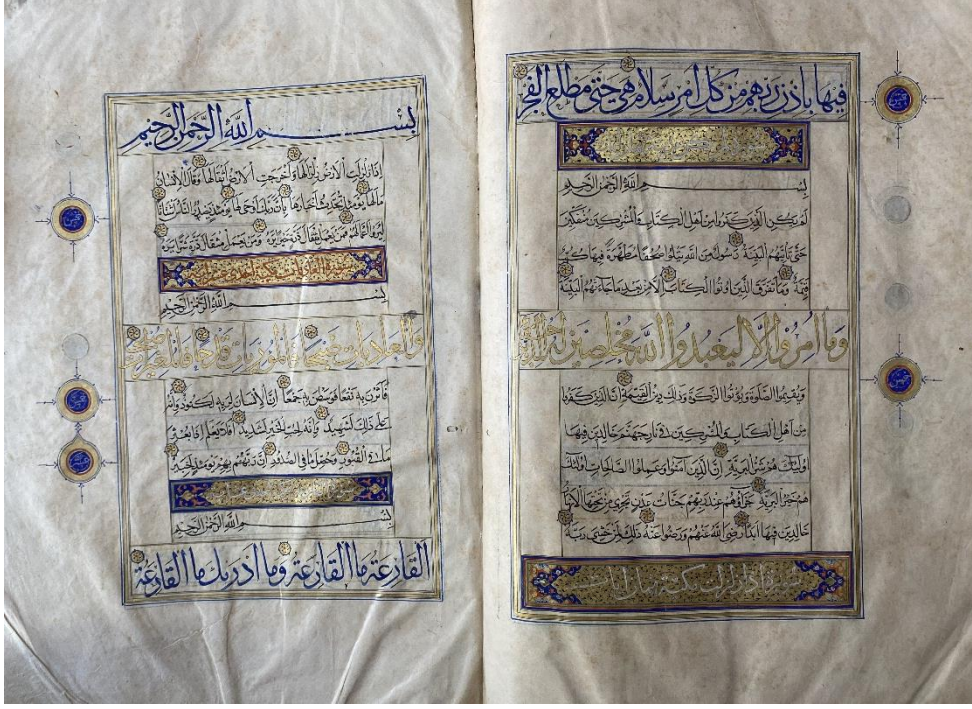 فيها باذن ربهم من كل امر سلام هي حتى مطلع الفجر
بسم الله الرحمن الرحيم
لم يكن الذين كفروا من اهل الكتاب والمشركين منفكين
حتى تأتيهم البينة رسول من الله يتلوا صحفا مطهرة فيها كتب
قيمة وما تفرق الذين اوتوا الكتاب الا من بعد ما جاءتهم البينة
وما امروا الا ليعبدوا الله مخلصين له الدين
ويقيموا الصلوة ويؤتوا الزكوة وذلك دين القيمة ان الذين كفروا
من اهل الكتاب والمشركين في نار جهنم خالدين فيها
اولئك هم شر البرية ان الذين آمنوا وعملوا الصالحات اولئك
هم خير البرية جزاؤهم عند ربهم جنات عدن تجري من تحتها الانهار
خالدين فيها ابدا رضي الله عنهم ورضوا عنه ذلك لمن خشي ربه
سورة اذا زلزلت مكية ثمان ايات
بسم الله الرحمن الرحيم
اذا زلزلت الارض زلزالها واخرجت الارض اثقالها وقال الانسان
مالها يومئذ تحدث اخبارها بان ربك اوحى لها يومئذ يصدر الناس اشتاتا
ليروا اعمالهم فمن يعمل مثقال ذرة خيرا يره ومن يعمل مثقال ذرة شرا يره
بسم الله الرحمن الرحيم
والعاديات ضبحا فالموريات قدحا فالمغيرات صبحا
فاثرن به نقعا فوسطن به جمعا ان الانسان لربه لكنود وانه
على ذلك لشهيد وانه لحب الخير لشديد افلا يعلم اذا بعثر
ما في القبور وحصل ما في الصدور ان ربهم بهم يومئذ لخبير
بسم الله الرحمن الرحيم
القارعة ما القارعة وما ادريك ما القارعة